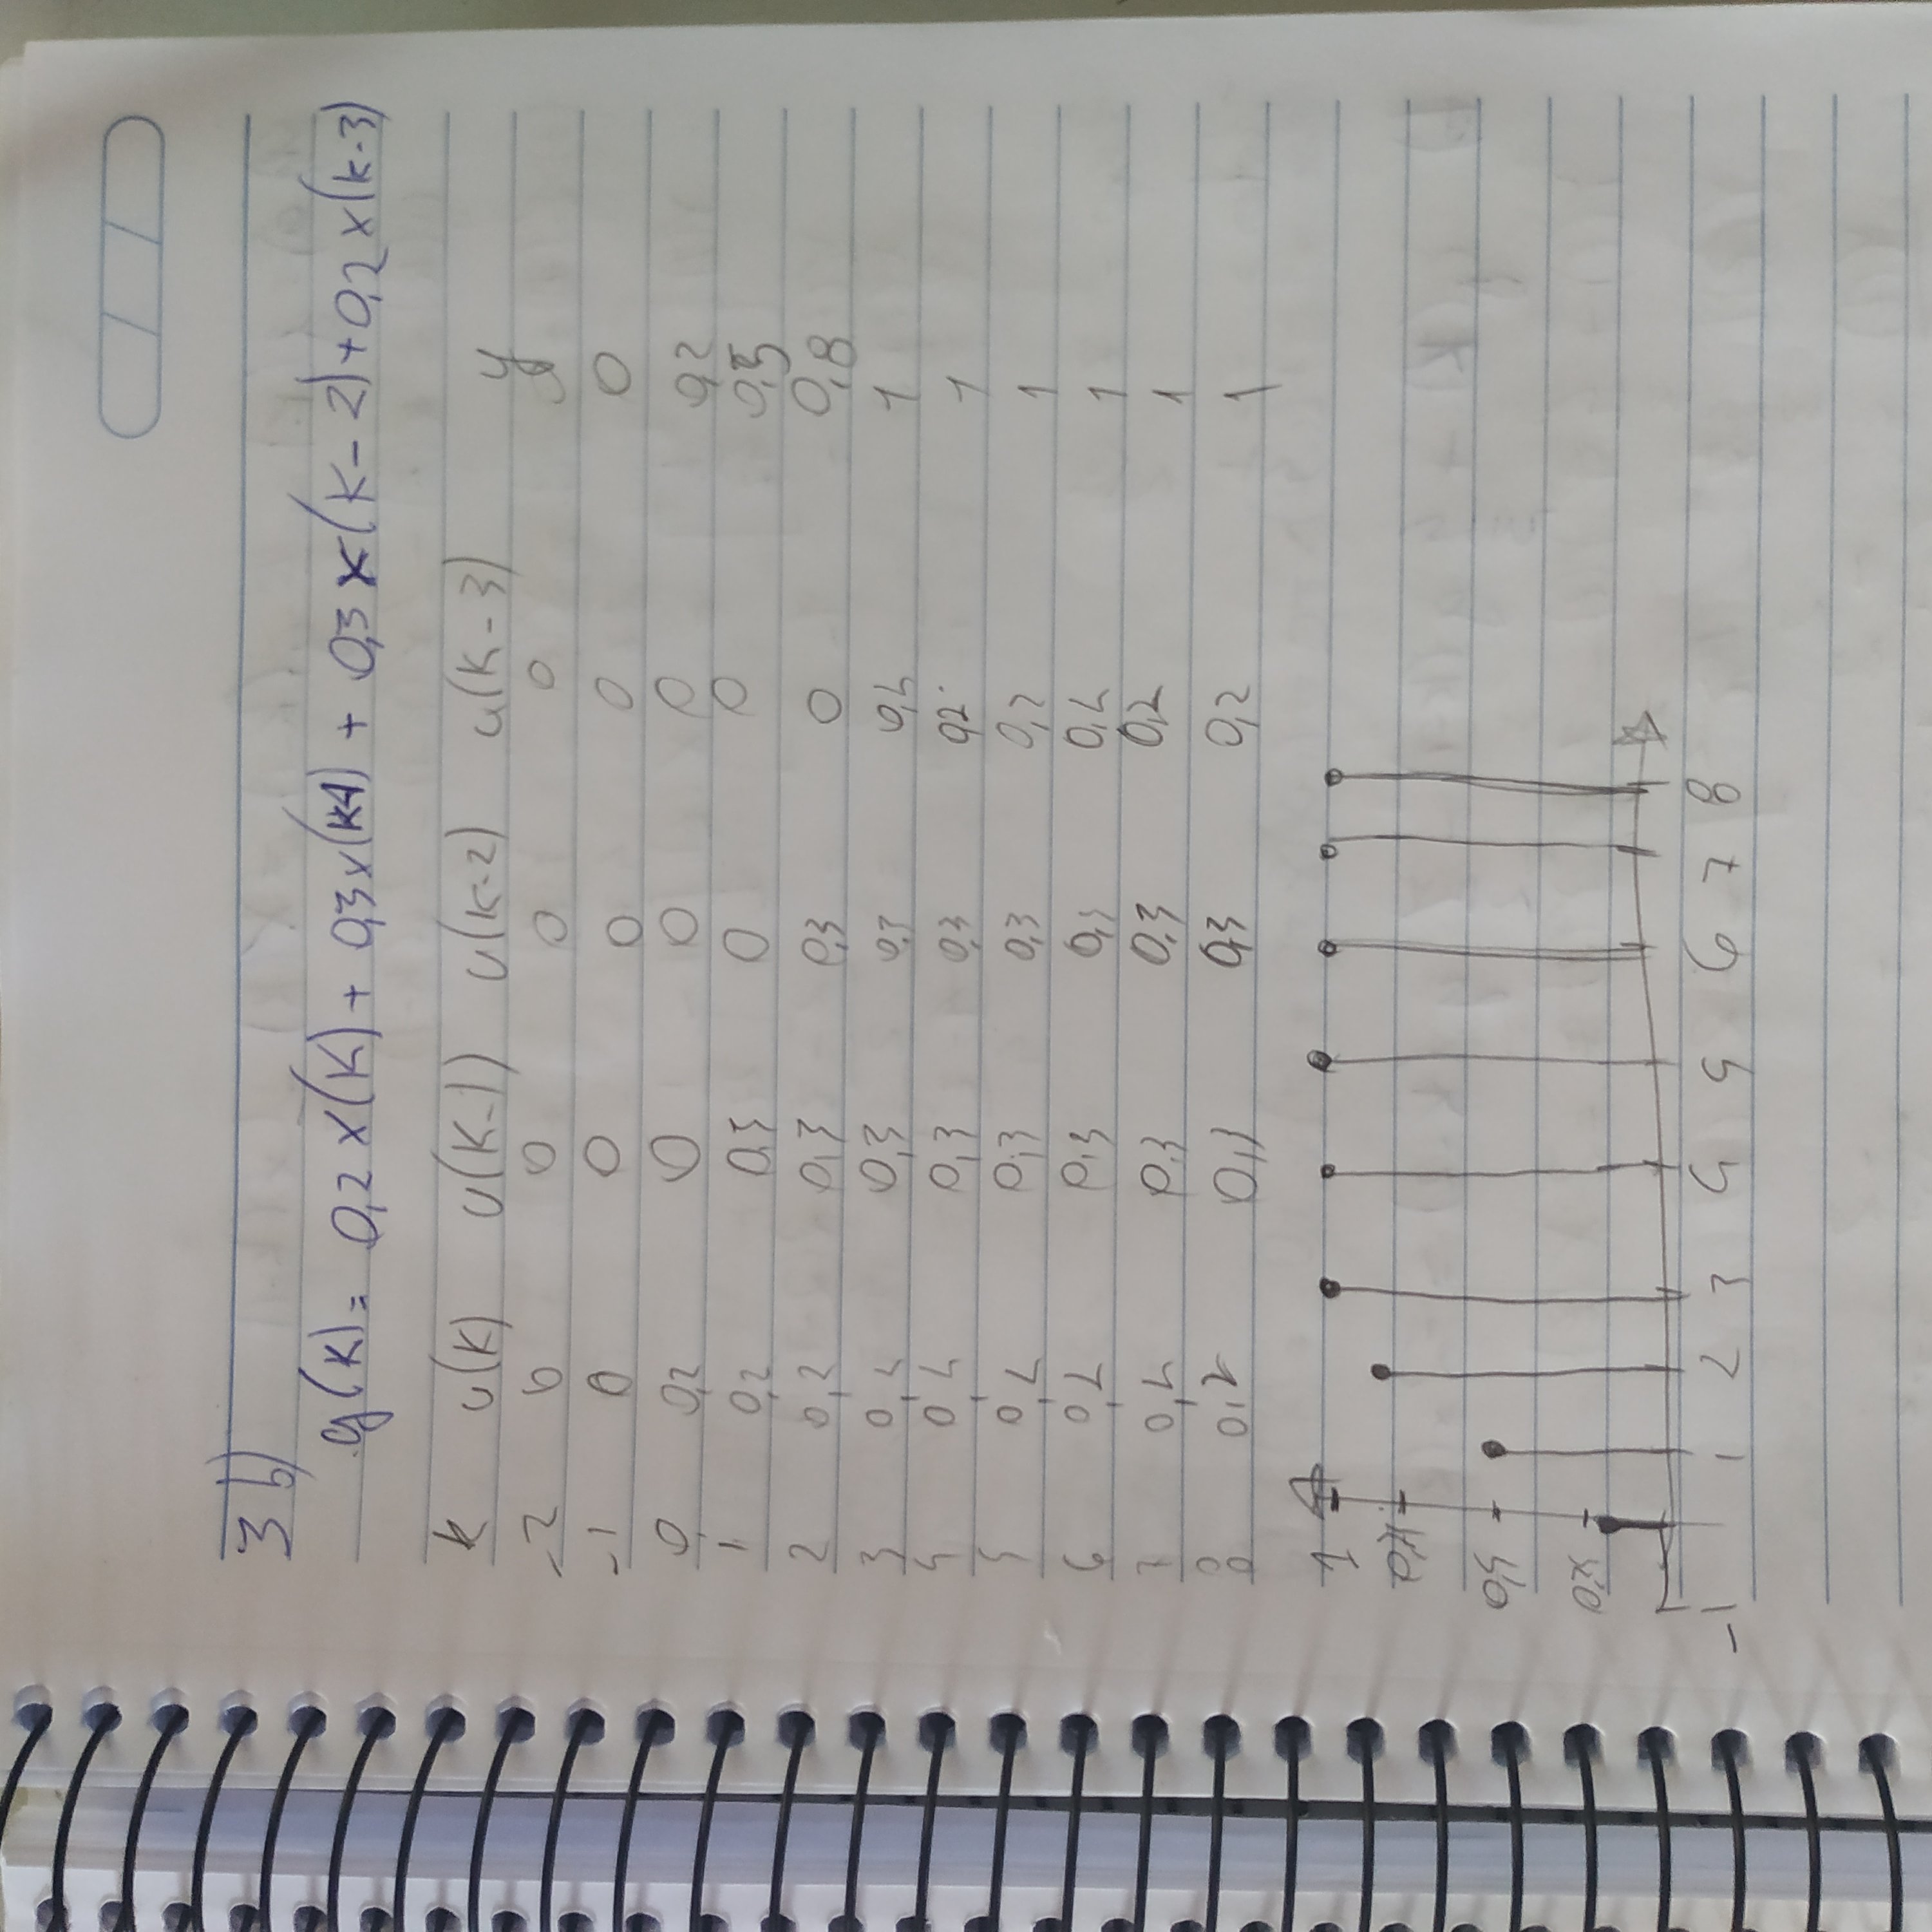 3 b)
y(k) = 0,2 x(k) + 0,3 x(k-1) + 0,3 x(k-2) + 0,2 x(k-3)
k u(k) u(k-1) u(k-2) u(k-3) y
-2 0 0 0 0 0
-1 0 0 0 0 0
0 0,2 0 0 0 0,2
1 0,2 0,3 0 0 0,5
2 0,2 0,3 0,3 0 0,8
3 0,2 0,3 0,3 0,2 1
4 0,2 0,3 0,3 0,2 1
5 0,2 0,3 0,3 0,2 1
6 0,2 0,3 0,3 0,2 1
7 0,2 0,3 0,3 0,2 1
8 0,2 0,3 0,3 0,2 1
1
0,5
-1 1 2 3 4 5 6 7 8